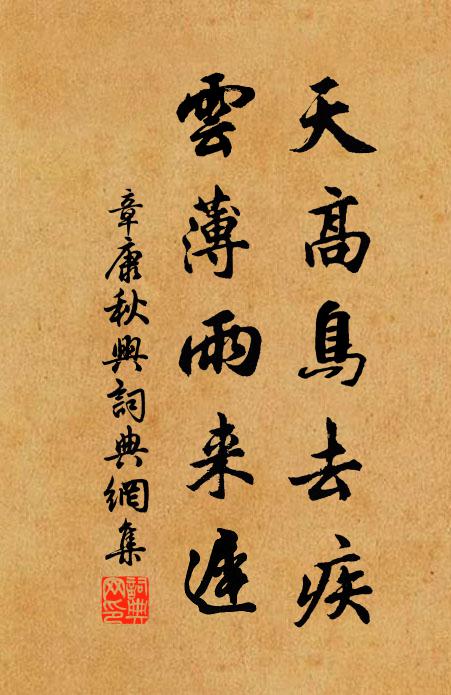 天高鳥去疾
雲薄雨来遲
章康秋興詞典網集
詞典網印